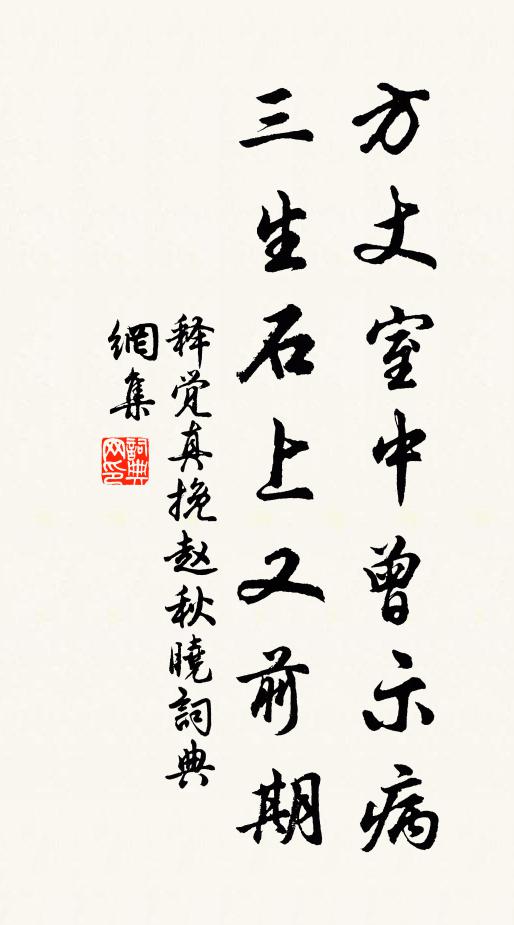 方丈室中曾示病
三生石上又前期
释觉真挽赵秋曉詞典
網集
詞典
网印